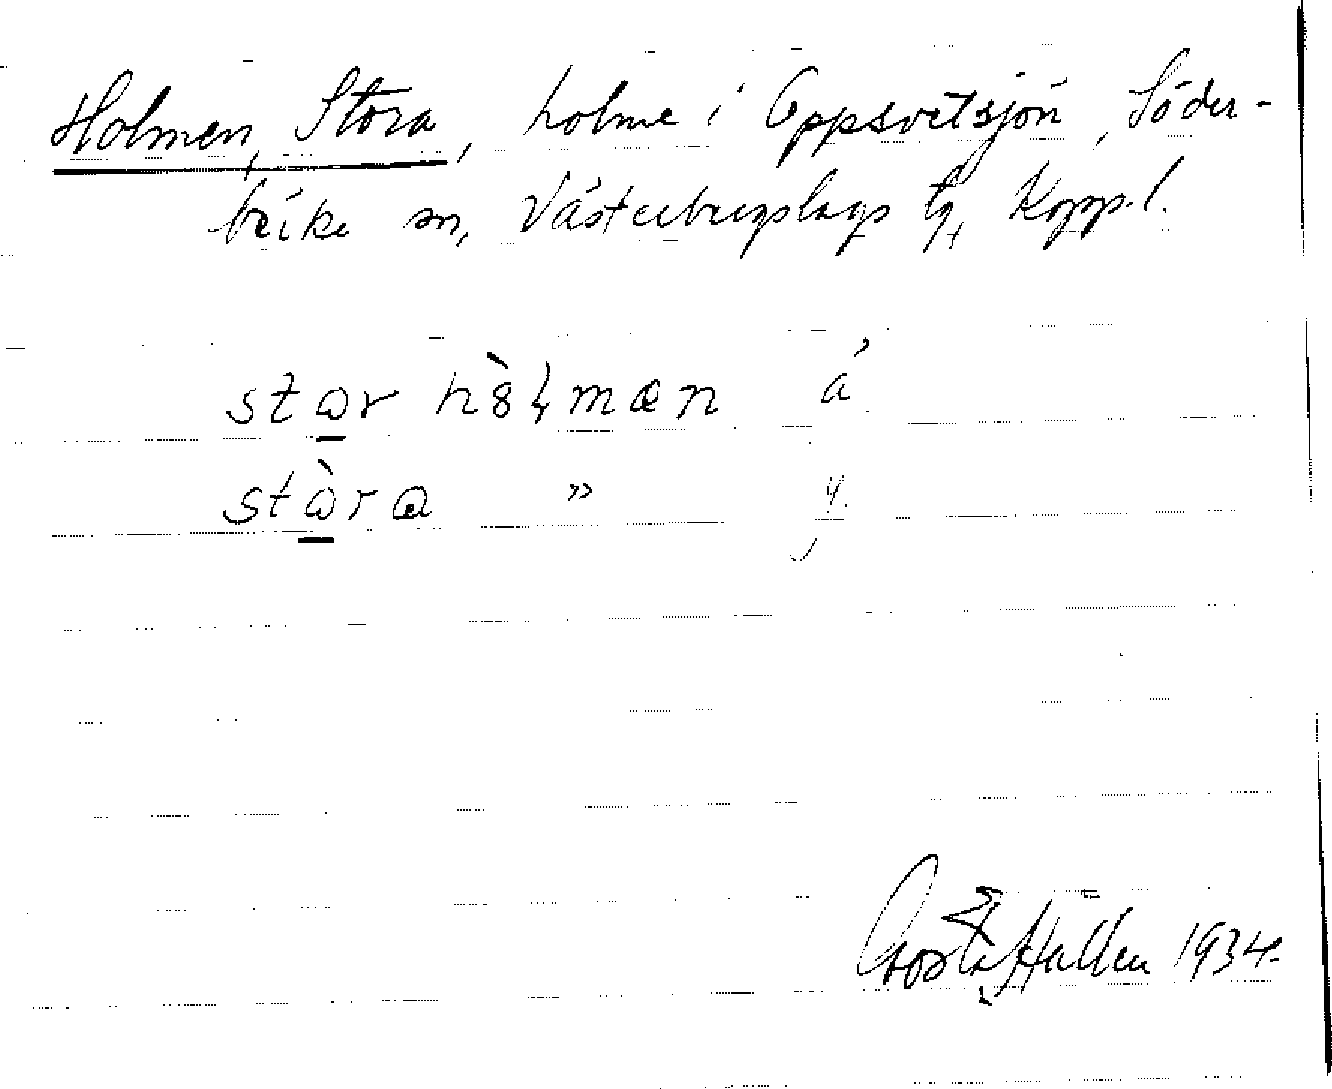 Holmen, Stora, holme i Oppsvetsjön, Söder-
bärke sn, Västerbergslags tg, Kopp. l.
star hòlmæn á
stàra » y.
Gösta Hallén 1934.